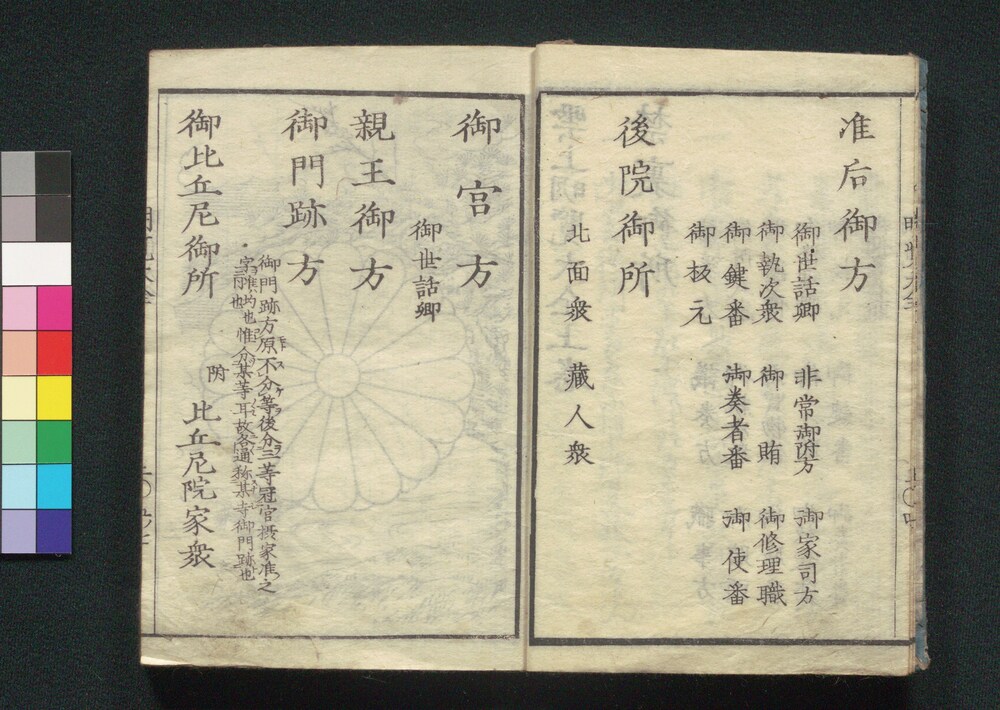 准后御方
御世話卿 非常御附方 御家司方
御執次衆 御賄 御修理職
御鍵番 御奏者番 御使番
御扱元
後院御所
北面衆 蔵人衆
御宮方
御世話卿
親王御方
御門跡方
御門跡方原不分等後分三等冠官摂家准之
字准均也惟分某等耳故各通称某寺御門跡也
御比丘尼御所 附 比丘尼院家衆